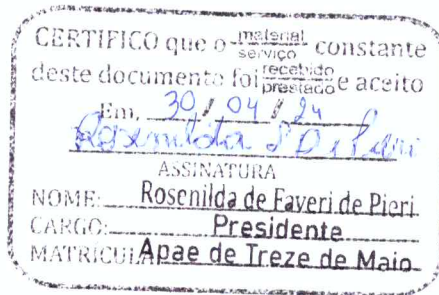 CERTIFICO que o material serviço constante
deste documento foi recebido prestado e aceito
Em, 30 / 04 / 24
Rosenilda
ASSINATURA
NOME: Rosenilda de Faveri de Pieri
CARGO: Presidente
MATRICULA Apae de Treze de Maio